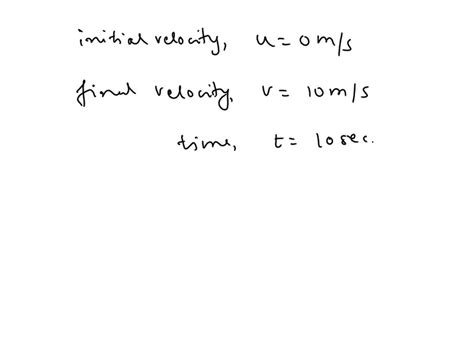 initial velocity, u = 0 m/s
final velocity, v = 10 m/s
time, t = 10 sec.